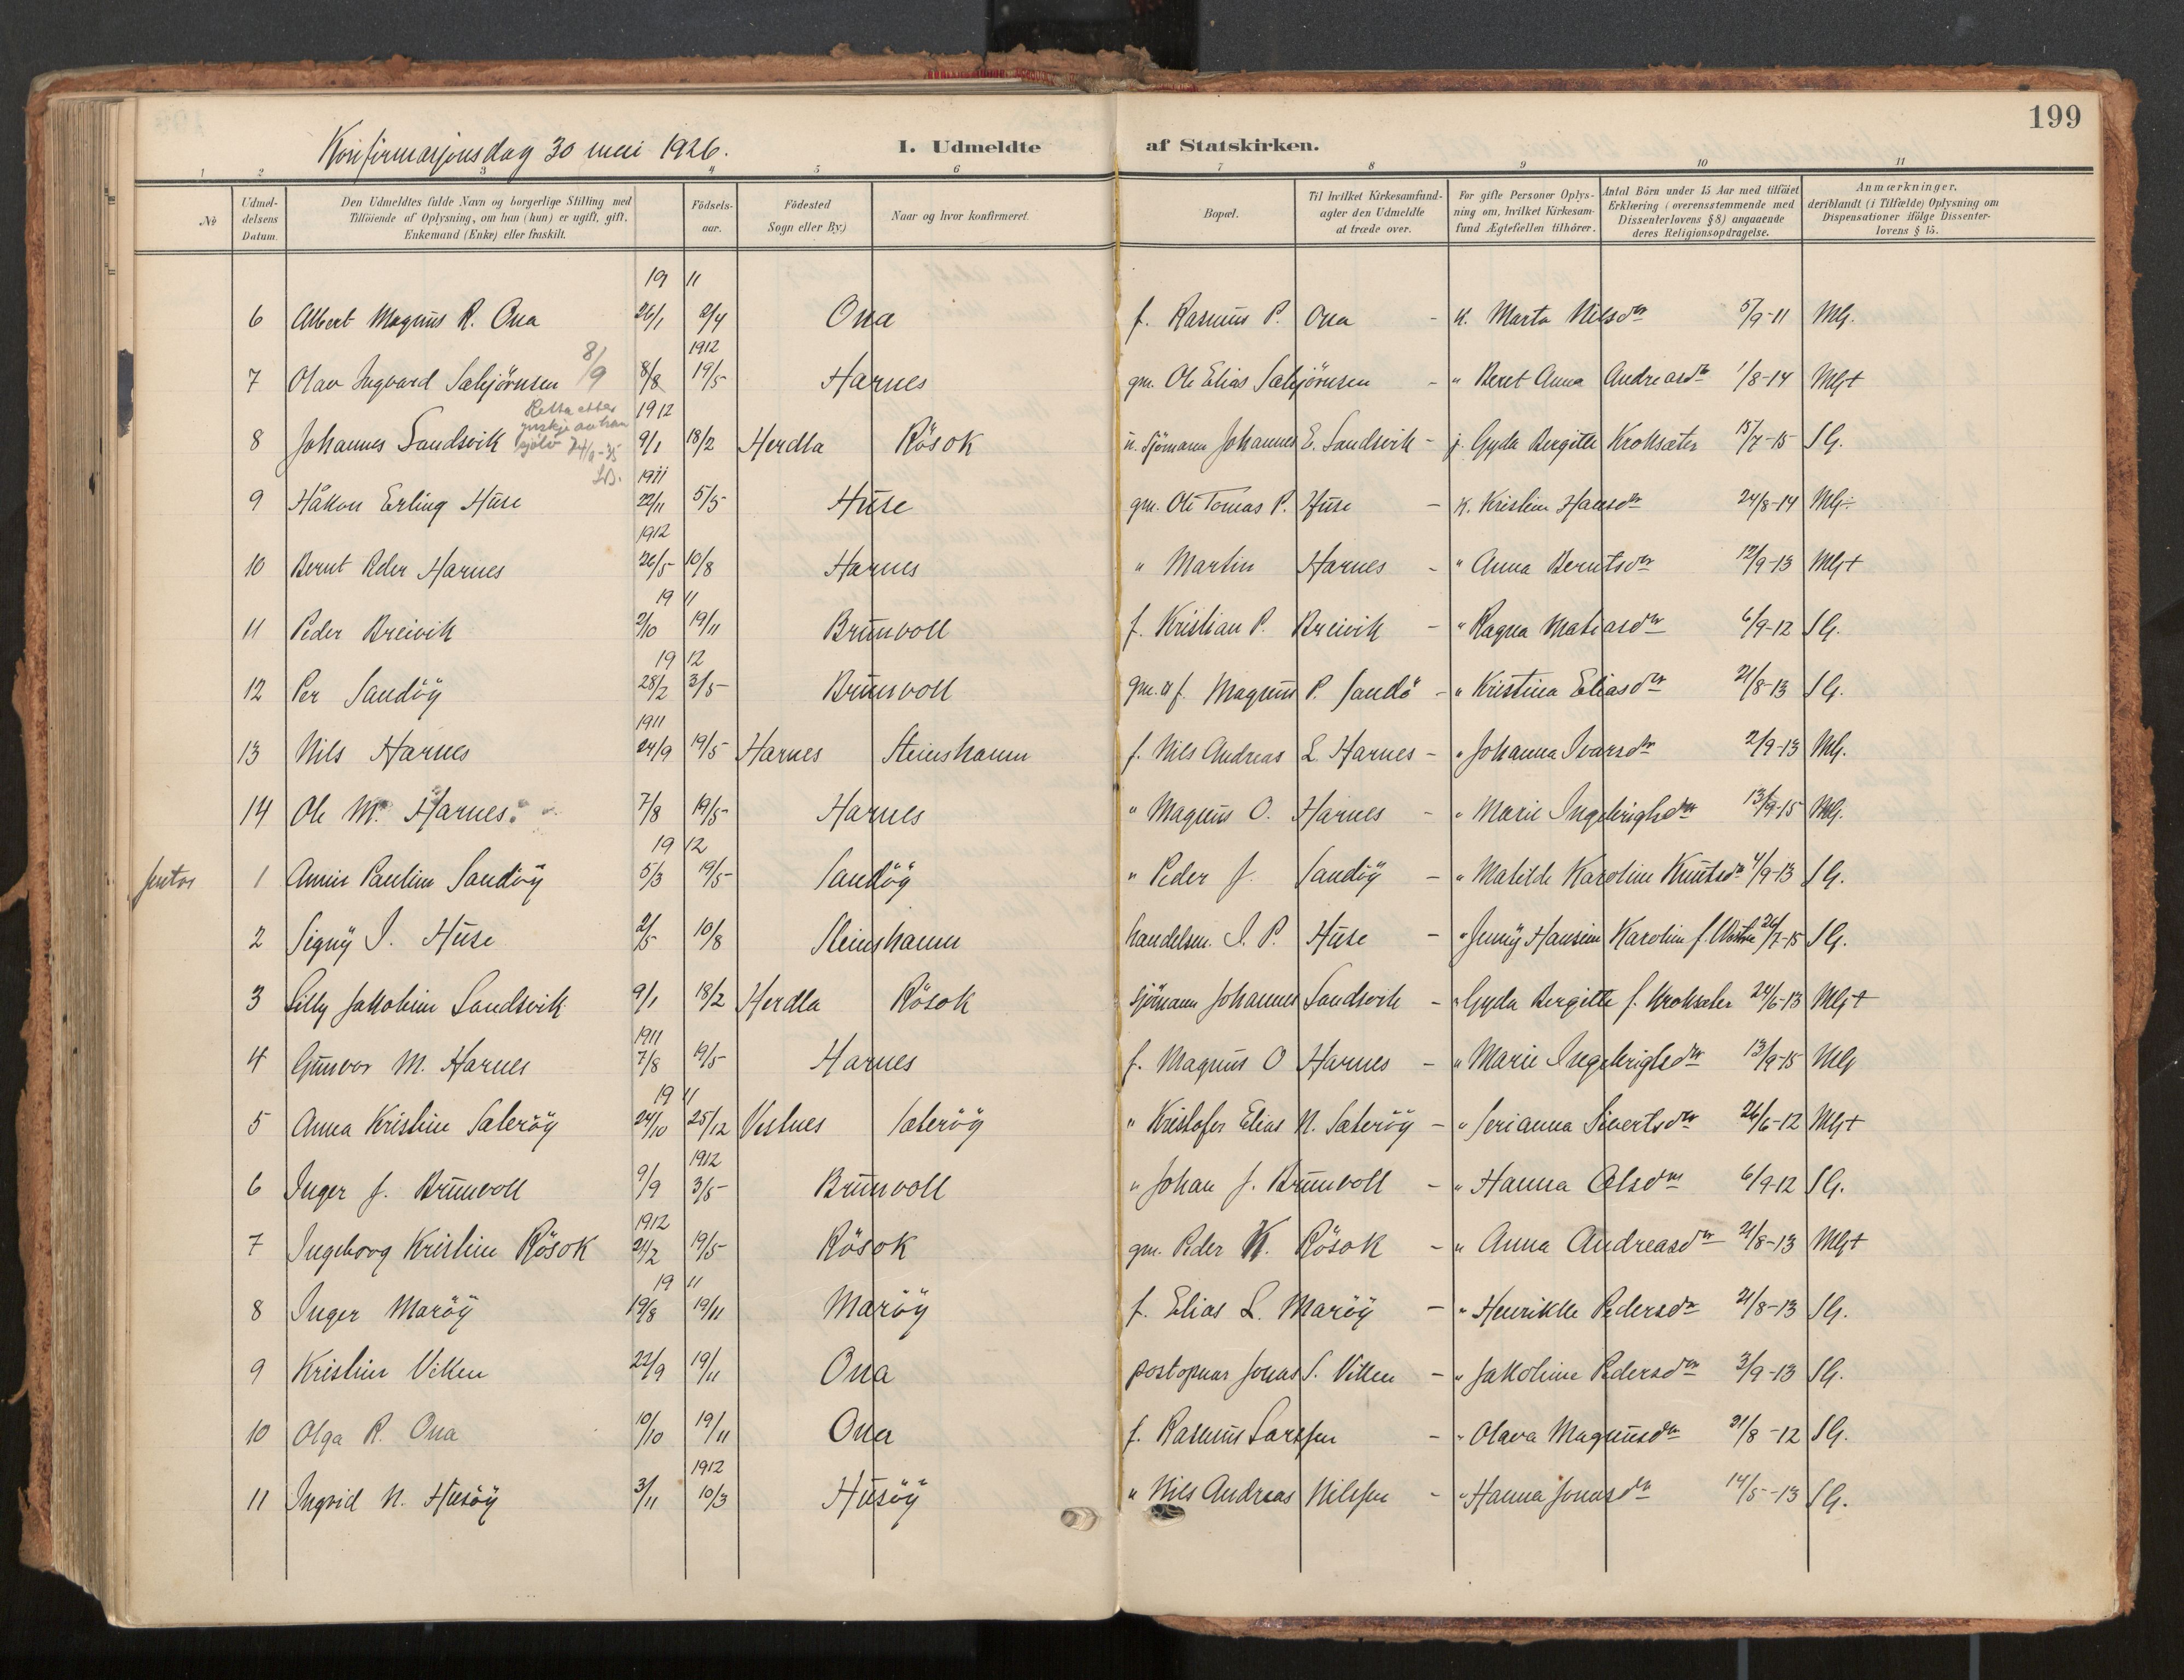 199
Konfirmasjonsdag 30 mai 1926.
I. Udmeldte af Statskirken.
1 2 3 4 5 6 7 8 9 10 11
No
Udmel-
delsens
Datum.
Den Udmeldtes fulde Navn og borgerlige Stilling med
Tilföiende af Oplysning, om han (hun) er ugift, gift,
Enkemand (Enke) eller fraskilt.
Födsels-
aar.
Födested
Sogn eller By.)
Naar og hvor konfirmeret.
Bopæl.
Til hvilket Kirkesamfund-
agter den Udmeldte
at træde over.
For gifte Personer Oplys-
ning om, hvilket Kirkesam-
fund Ægtefællen tilhörer.
Antal Börn under 15 Aar med tilföiet
Erklæring (overensstemmende med
Dissenterlovens § 8) angaaende
deres Religionsopdragelse.
Anmærkninger,
deriblandt (i Tilfælde) Oplysning om
Dispensationer ifölge Dissenter-
lovens § 15.
19 11
6 Albert Magnus R. Ona 26/1 2/4 Ona f. Rasmus P. Ona - k. Marta Nilsdtr 5/9-11 Mg.
8/9 1912
7 Olav Ingvard Sæbjörnsen 8/8 19/5 Harnes gm. Ole Elias Sæbjörnsen - " Beret Anna Andreasdtr 1/8-14 Mg+
Retta etter 1912
ynskje av han
8 Johannes Sandsvik sjølv 9/1 18/2 Herdla Rösok Sjömann Johannes E. Sandsvik - Gyda Bergitte Kroksæter 15/7-15 SG.
1911
9 Håkon Erling Huse 22/11 5/5 Huse gm. Ole Tomas P. Huse - k. Kristine Hansdtr 24/8-14 Mg÷
1912
10 Bernt Peder Harnes 26/5 10/8 Harnes " Martin Harnes - " Anna Berntsdtr 12/9-13 Mg+
19 11
11 Peder Breivik 2/10 19/11 Brunvoll f. Kristian P. Breivik - " Ragna Matiasdtr 6/9-12 SG.
19 12
12 Per Sandöy 28/2 3/5 Brunvoll gm. & f. Magnus P. Sandö - " Kristina Eliasdtr 21/8-13 SG.
1911
13 Nils Harnes 24/9 19/5 Harnes Steinshamn f. Nils Andreas L. Harnes - " Johanna Ivarsdtr 2/9-13 Mg.
14 Ole M. Harnes 7/8 19/5 Harnes " Magnus O. Harnes - " Marie Ingebrigtsdtr 13/9-15 Mg.
19 12
Jentor 1 Annie Pauline Sandöy 5/3 19/5 Sandöy " Peder J. Sandöy - " Matilde Karoline Knutsdtr 4/9-13 SG.
2 Signy I. Huse 2/5 10/8 Steinshamn handelsm. I. P. Huse - " Jenny Hansine Karoline f. 26/7-15 SG.
3 Lilly Jakobine Sandsvik 9/1 18/2 Herdla Rösok Sjömann Johannes Sandsvik - " Gyda Bergitte f. Kroksæter 24/6-13 Mg+
1911
4 Gunvor M. Harnes 7/8 19/5 Harnes f. Magnus O Harnes - " Marie Ingebrigtsdtr 13/9-15 Mg
19 11
5 Anna Kristine Sæteröy 24/10 25/12 Vestnes Sæteröy " Kristofer Elias N. Sæteröy - " Serianna Sivertsdtr 26/6-12 Mg+
1912
6 Inger J. Brunvoll 9/9 3/5 Brunvoll " Johan J. Brunvoll - " Hanna Olsdtr 6/9-12 SG.
1912
7 Ingeborg Kristine Rösok 21/2 19/5 Rösok gm. Peder K. Rösok - " Anna Andreasdtr 21/8-13 Mg+
19 11
8 Inger Maröy 19/8 19/11 Maröy f. Elias L. Maröy - " Henrikke Pedersdtr 21/8-13 SG.
9 Kristine Vikken 22/9 19/11 Ona postopnar Jonas S. Vikken - " Jakobine Pedersdtr 3/9-13 SG.
10 Olga R. Ona 10/10 19/11 Ona f. Rasmus Larssen - " Olava Magnusdtr 21/8-12 SG.
1912
11 Ingrid N. Husöy 3/11 10/3 Husöy " Nils Andreas Nilssen - " Hanna Jonasdtr 14/5-13 SG.